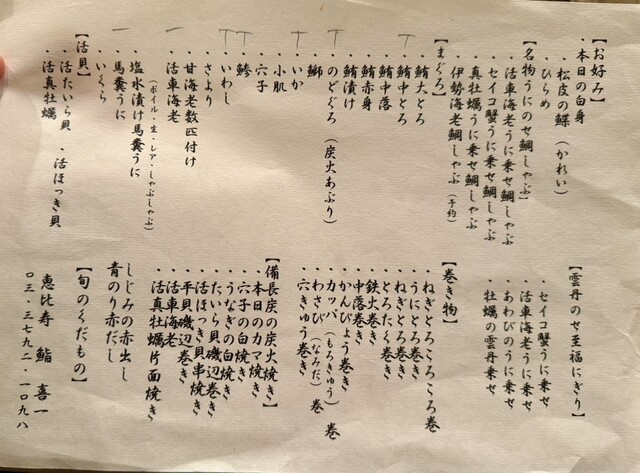 【お好み】
・本日の白身
・松皮の鰈（かれい）
・ひらめ
【名物うにのせ鯛しゃぶ】
・活車海老うに乗せ鯛しゃぶ
・セイコ蟹うに乗せ鯛しゃぶ
・真牡蠣うに乗せ鯛しゃぶ
・伊勢海老鯛しゃぶ（予約）
【まぐろ】
・鮪大とろ
・鮪中とろ
・鮪中落
・鮪赤身
・鮪漬け
・のどぐろ（炭火あぶり）
・鰤
・いか
・小肌
・穴子
・鯵
・いわし
・さより
・甘海老数匹付け
・活車海老
（ボイル・生・レア・しゃぶしゃぶ）
・塩水漬け馬糞うに
・馬糞うに
・いくら
【活貝】
・活たいら貝　・活ほっき貝
・活真牡蠣
【雲丹のせ至福にぎり】
・セイコ蟹うに乗せ
・活車海老うに乗せ
・あわびのうに乗せ
・牡蠣の雲丹乗せ
【巻き物】
・ねぎとろころころ巻
・うにとろ巻き
・ねぎとろ巻き
・とろたく巻き
・鉄火巻き
・中落巻き
・かんぴょう巻き
・カッパ（もろきゅう）巻
・わさび（なろだ）巻
・穴きゅう巻き
【備長炭の炭火焼き】
・本日のカマ焼き
・穴子の白焼き
・うなぎの白焼き
・たいら貝磯辺巻き
・活ほっき貝串焼き
・平貝磯辺巻き
・活車海老
・活真牡蠣片面焼き
しじみの赤出し
青のり赤だし
【旬のくだもの】
恵比寿　鮨　喜一
〇三・三七九二・一〇九八